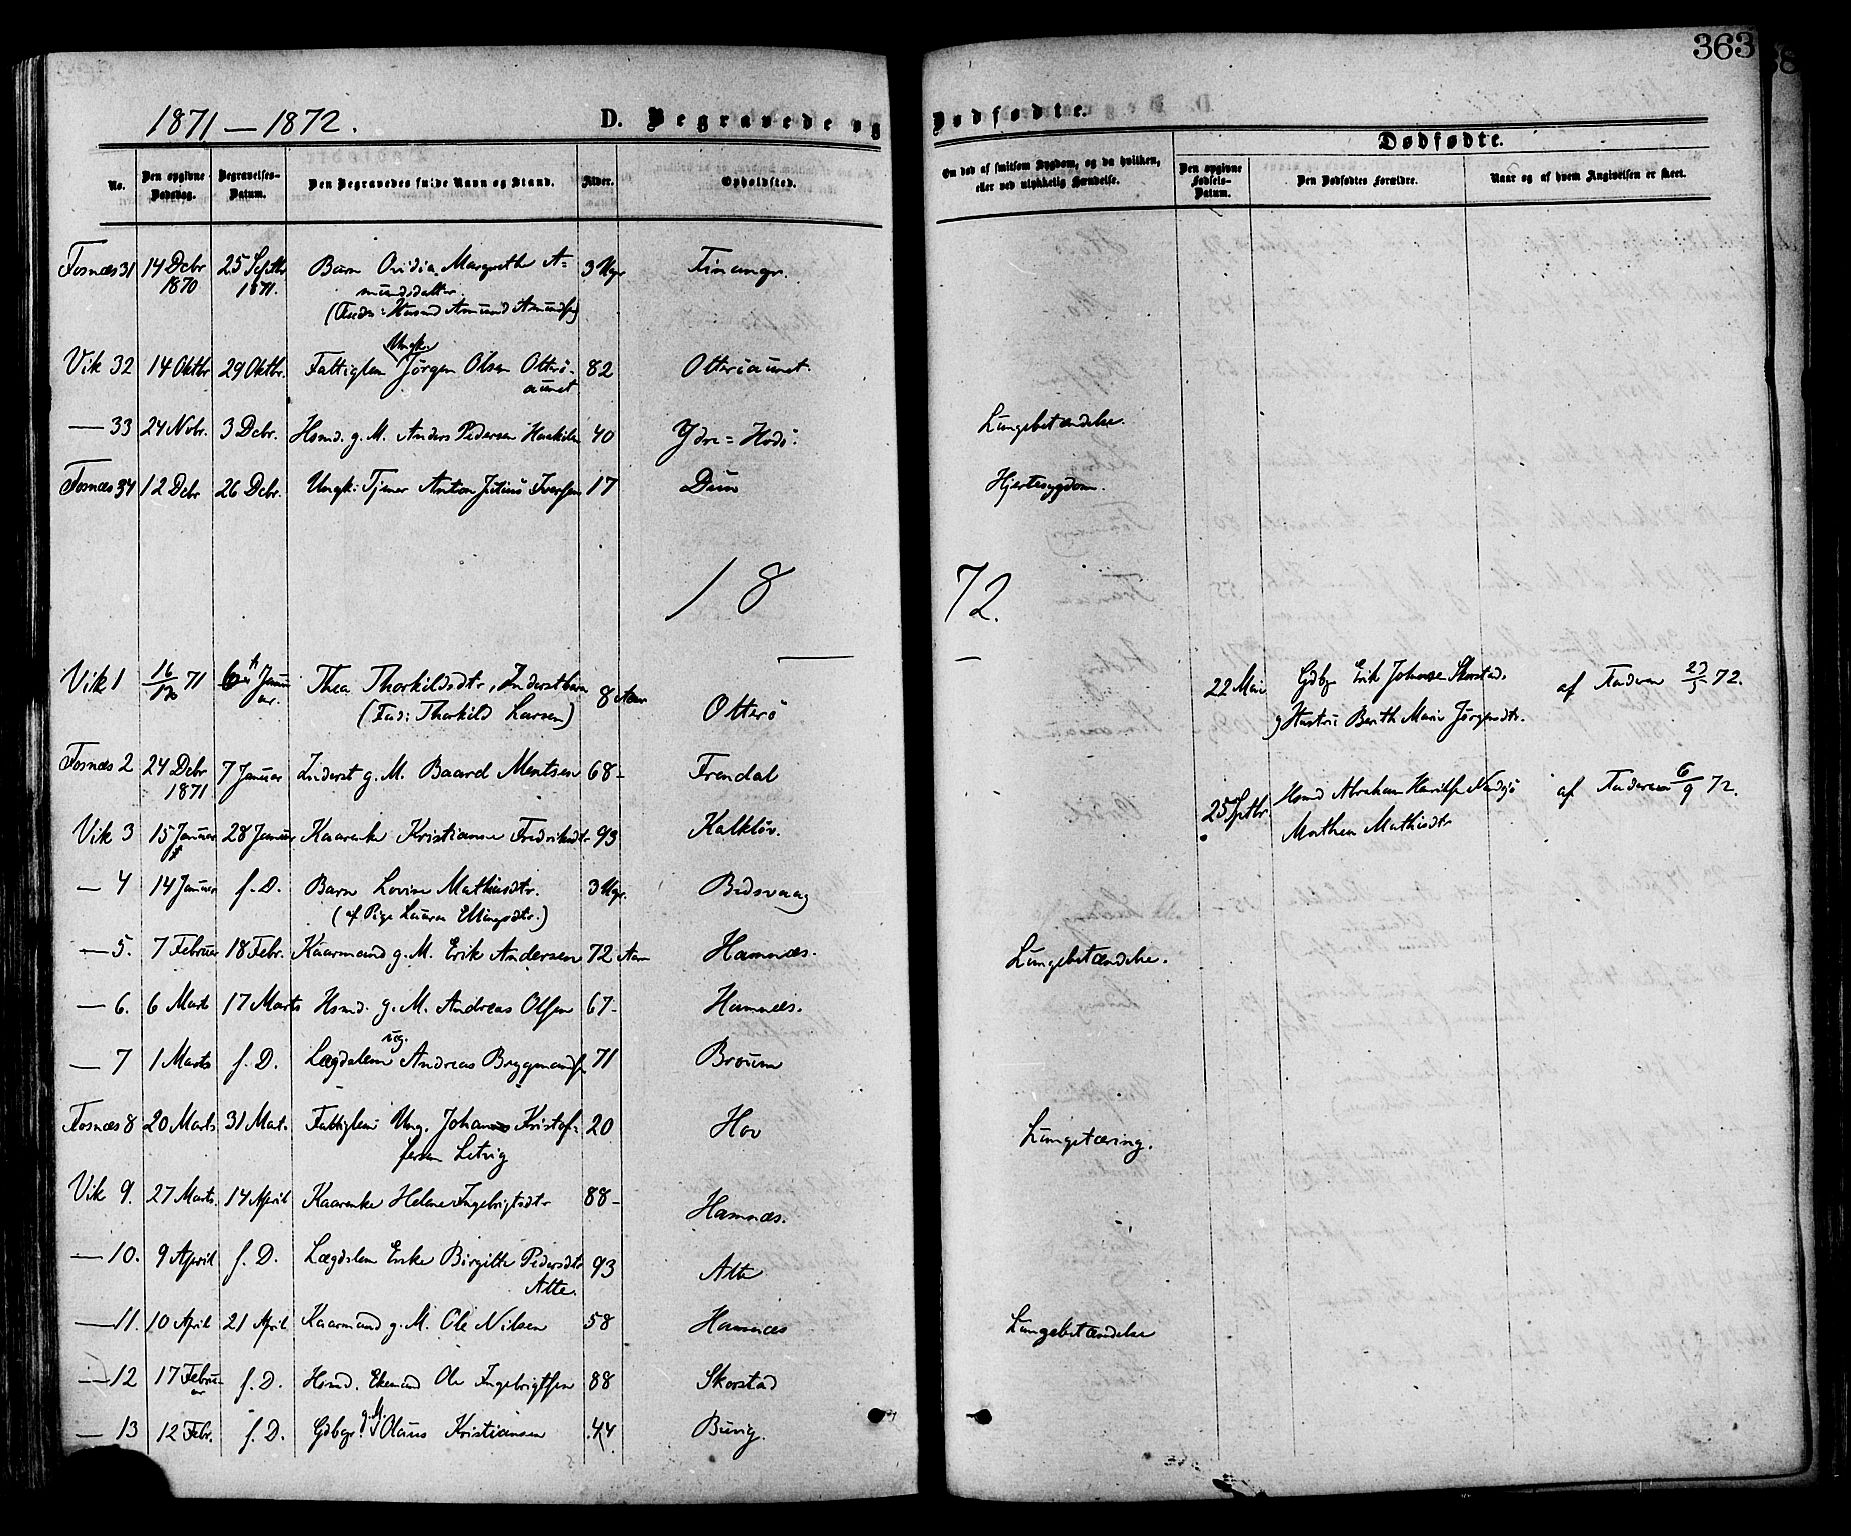 363
1871 — 1872.
D. Begravede og Dødfødte.
No.
Den opgivne Dødsdag.
Begravelses-Datum.
Den Begravedes fulde Navn og Stand.
Alder.
Opholdssted.
Om død af smitsom Sygdom, og da hvilken, eller ved ulykkelig Hændelse.
Dødfødte.
Den opgivne Fødsels-Datum.
Den Dødfødtes Forældre.
Naar og af hvem Angivelsen er skeet.
Fosnæs 31 14 Debr 1870 25 Septbr 1871. Barn Ovidia Margrethe A=
mundsdatter 3 Ugr
(Fader: Husmd Amund Amunds)
Vik 32 14 Oktbr 29 Oktbr. Fattiglem Ungk. Jørgen Olsen Otterø-
aunet 82 Otteröaunet.
— 33 24 Nvbr. 3 Debr. Hsmd. g. M. Anders Pedersen 40 Ydre=Hodö. Lungebetændelse.
Fosnæs 34 12 Debr 26 Debr. Ungk: Tjener Anton Julius Iversen 17 Duun Hjertesygdom.
1872.
Vik 1 16/12 71 6 Januar. Thea Thorkildsdtr, Inderstbarn
(Fad: Thorkild Larsen) 8 Aar Otterö
22 Mai Gdbgr Erik Johnsen Skorstad
og Hustru Berith Marie Jørgensdtr. af Faderen 23/5 72.
Fosnæs 2 24 Debr 1871 7 Januar Inderst g. M. Baard Mentsen 68- Frendal
25 Sptbr Hsmd Abraham
Mathea Mathisdtr af Faderen 6/9 72.
Vik 3 15 Januar 28 Januar Kaarenke Kristianne Fredriksdtr 93 Kalklöv.
— 4 14 Januar f. D. Barn Lovise Mathiasdtr. 3 Ugr. Bedsvaag
(af Pige Laura Ellingsdtr.)
— 5. 7 Februar 18 Febr. Kaarmand g. M. Erik Andersen 72 Aar Hamnæs. Lungebetændelse.
— 6. 6 Marts 17 Marts Hsmd. g. M. Andreas Olsen 67- Hamnæs.
— 7 1 Marts f. D. Lægdslem ug. Andreas Brygmands 71 Broum
Fosnæs 8 20 Marts 31 Mar. Fattiglem Ung. Johannes Kristof=
fersen Setvig 20 Hov Lungetæring.
Vik 9. 27 Marts. 14 April Kaarenke Helene Ingebrigtsdtr 88- Hamnæs.
— 10. 9 April f. D. Lægdslem Enke Birgitte Pedersdtr
Alte. 93 Alte
— 11. 10 April 21 April Kaarmand g. M. Ole Nilsen 58 Hamnæs Lungebetændelse
— 12 17 Februar f. D. Hsmd. Ekemand Ole Ingebrigtsen 88 Skorstad
— 13 12 Febr. f. D. Gdbgr. g.M. Olaus Kristiansen 44. Buvig.